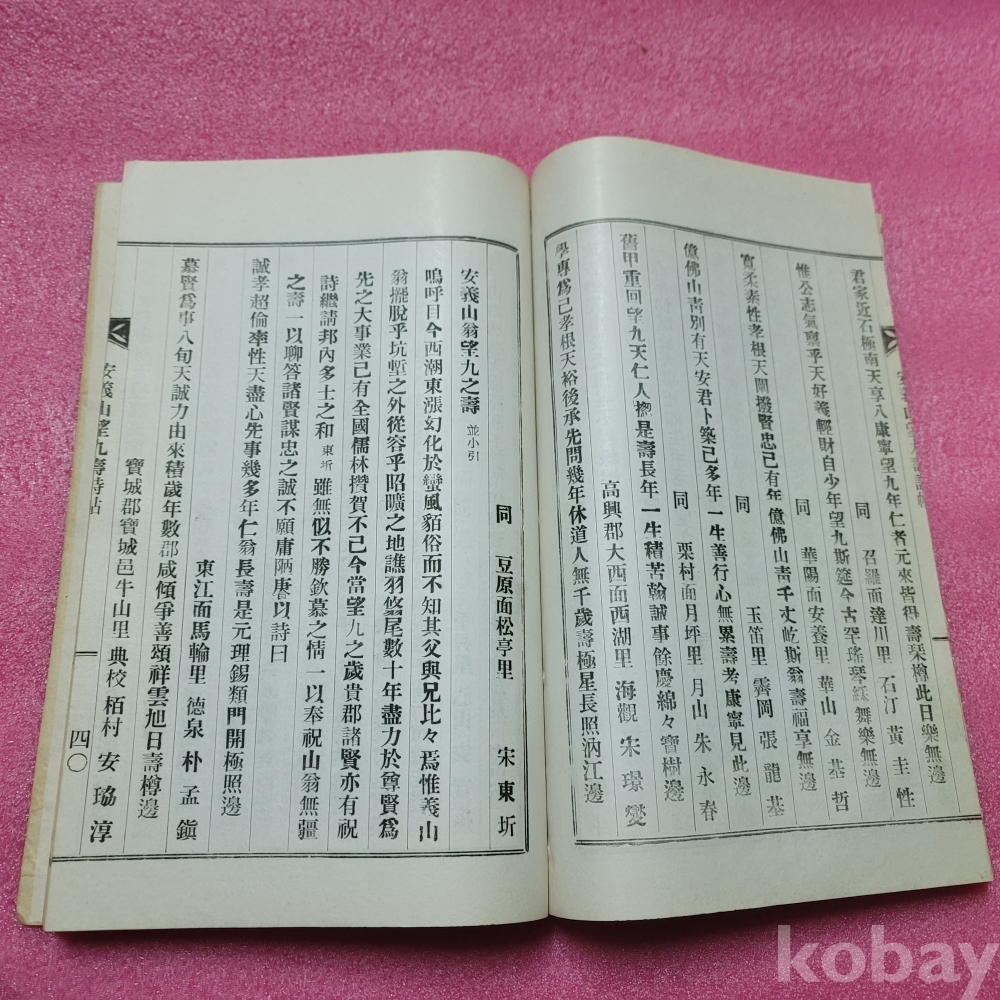 君家近石極南天享八康寧望九年仁者元來皆得壽琹樽此日樂無邊
同 召羅面達川里 石汀 黃圭性
惟公志氣禀乎天好義輕財自少年望九斯筵今古罕瑤琴綵舞樂無邊
同 華陽面安養里 華山 金基哲
寬柔素性孝根天闡揆賢忠己有年億佛山靑千丈屹斯翁壽福享無邊
同 玉笛里 霽岡 張龍基
億佛山靑別有天安君卜築己多年一生善行心無累壽考康寧見此邊
同 栗村面月坪里 月山 朱永春
舊甲重回望九天仁人摠是壽長年一生積苦翰誠事餘慶綿々寶樹邊
高興郡大西面西湖里 海觀 宋璟燮
學專爲己孝根天裕後承先問幾年休道人無千歲壽極星長照汭江邊
同 豆原面松亭里 宋東圻
安義山翁望九之壽 並小引
嗚呼目今西潮東漲幻化於蠻風貊俗而不知其父與兄比々焉惟義山
翁擺脫乎坑塹之外從容乎昭曠之地譙羽悠尾數十年盡力於尊賢爲
先之大事業己有全國儒林攢賀不己今當望九之歲貴郡諸賢亦有祝
詩繼請邦內多士之和 東圻 雖無似不勝欽慕之情一以奉祝山翁無疆
之壽一以聊答諸賢謀忠之誠不願庸陋賡以詩曰
誠孝超倫率性天盡心先事幾多年仁翁長壽是元理錫類門開極照邊
東江面馬輪里 德泉 朴孟鎭
慕賢爲事八旬天誠力由來積歲年數郡咸傾爭善頌祥雲旭日壽樽邊
寶城郡寶城邑牛山里 典校 栢村 安瑒淳
安義山望九壽詩帖
四〇
kobay